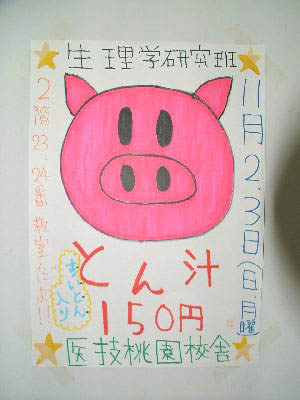 生理学研究班
11月2、3日(日、月曜)
2階23、24番教室だよ!!
とん汁
すいとん入り
150円
医技桃園校舎